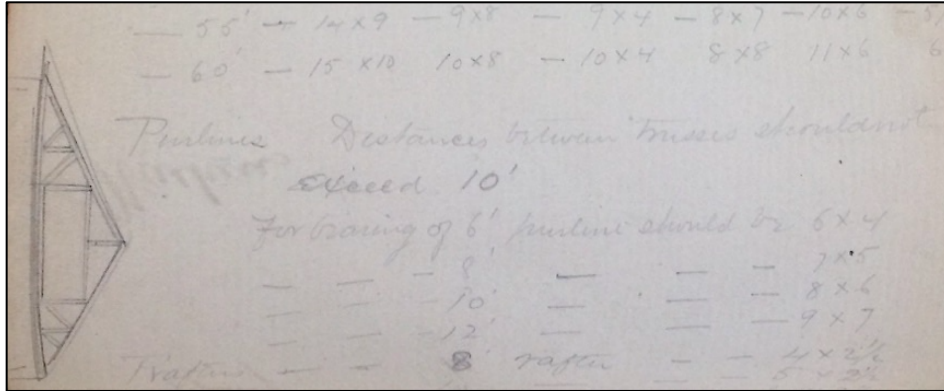 — 55' — 14 x 9 — 9 x 8 — 9 x 4 — 8 x 7 — 10 x 6 — 5
— 60' — 15 x 10 10 x 8 — 10 x 4 8 x 8 11 x 6 6
Purlines Distances between trusses should not
exceed 10'
For bearing of 6' purline should be 6 x 4
— — - 8' — — — 7 x 5
— — - 10' — — — 8 x 6
— — - 12' — — — 9 x 7
Rafters — - 8' rafter — — 4 x 2½
5 x 2½